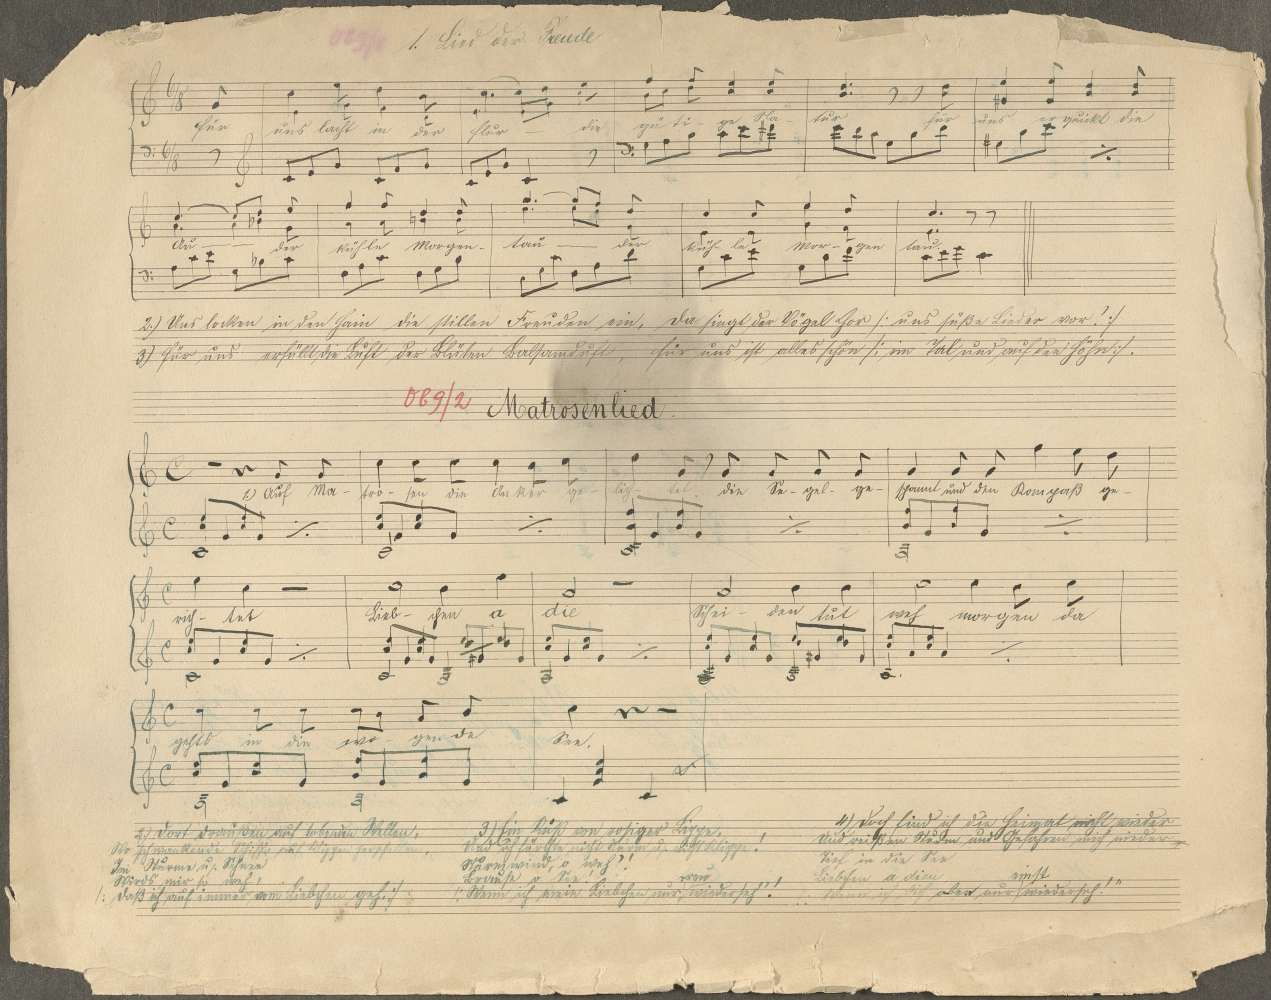 089/1
1. Lied der Freude
Für uns lacht in der Flur — die gü-ti-ge Na-tur für uns erquickt die
Au — der kühle Morgen-tau — der küh-le Mor-gen tau.
2.) Uns locken in den Hain die stillen Freuden ein, da singt der Vögel Chor /: uns süße Lieder vor! :/
3) Für uns erfüllt die Luft der Blüten Balsamduft für uns ist alles schön /: im Tal und auf den Höhn :/.
089/2 Matrosenlied.
1) Auf Ma-tro-sen die Anker ge-lich-tet! die Se-gel ge-spannt und den Kompaß ge-
rich-tet Lieb-chen a die Schei-den tut weh morgen da
gehts in die wo-gende See.
2.) Dort draußen auf tobenden Wellen,
Schwankende Schiffe auf Klippen zerschellen,
Im Sturme u. Schnee
Wirds mir so weh!
/: Daß ich auf immer vom Liebchen geh :/
3) Ein Kuß von rosiger Lippe,
Und ich fürchte nicht Klippe!
Sturmwind, o weh'!
Brause o See!
/: Wenn ich mein Liebchen nur wiederseh'! :/
4) Doch find ich die Heimat nicht wieder
Und reißen Sturm und Gefahren mich nieder
Tief in die See
Liebchen a dieu
oben nur wiederseh'!